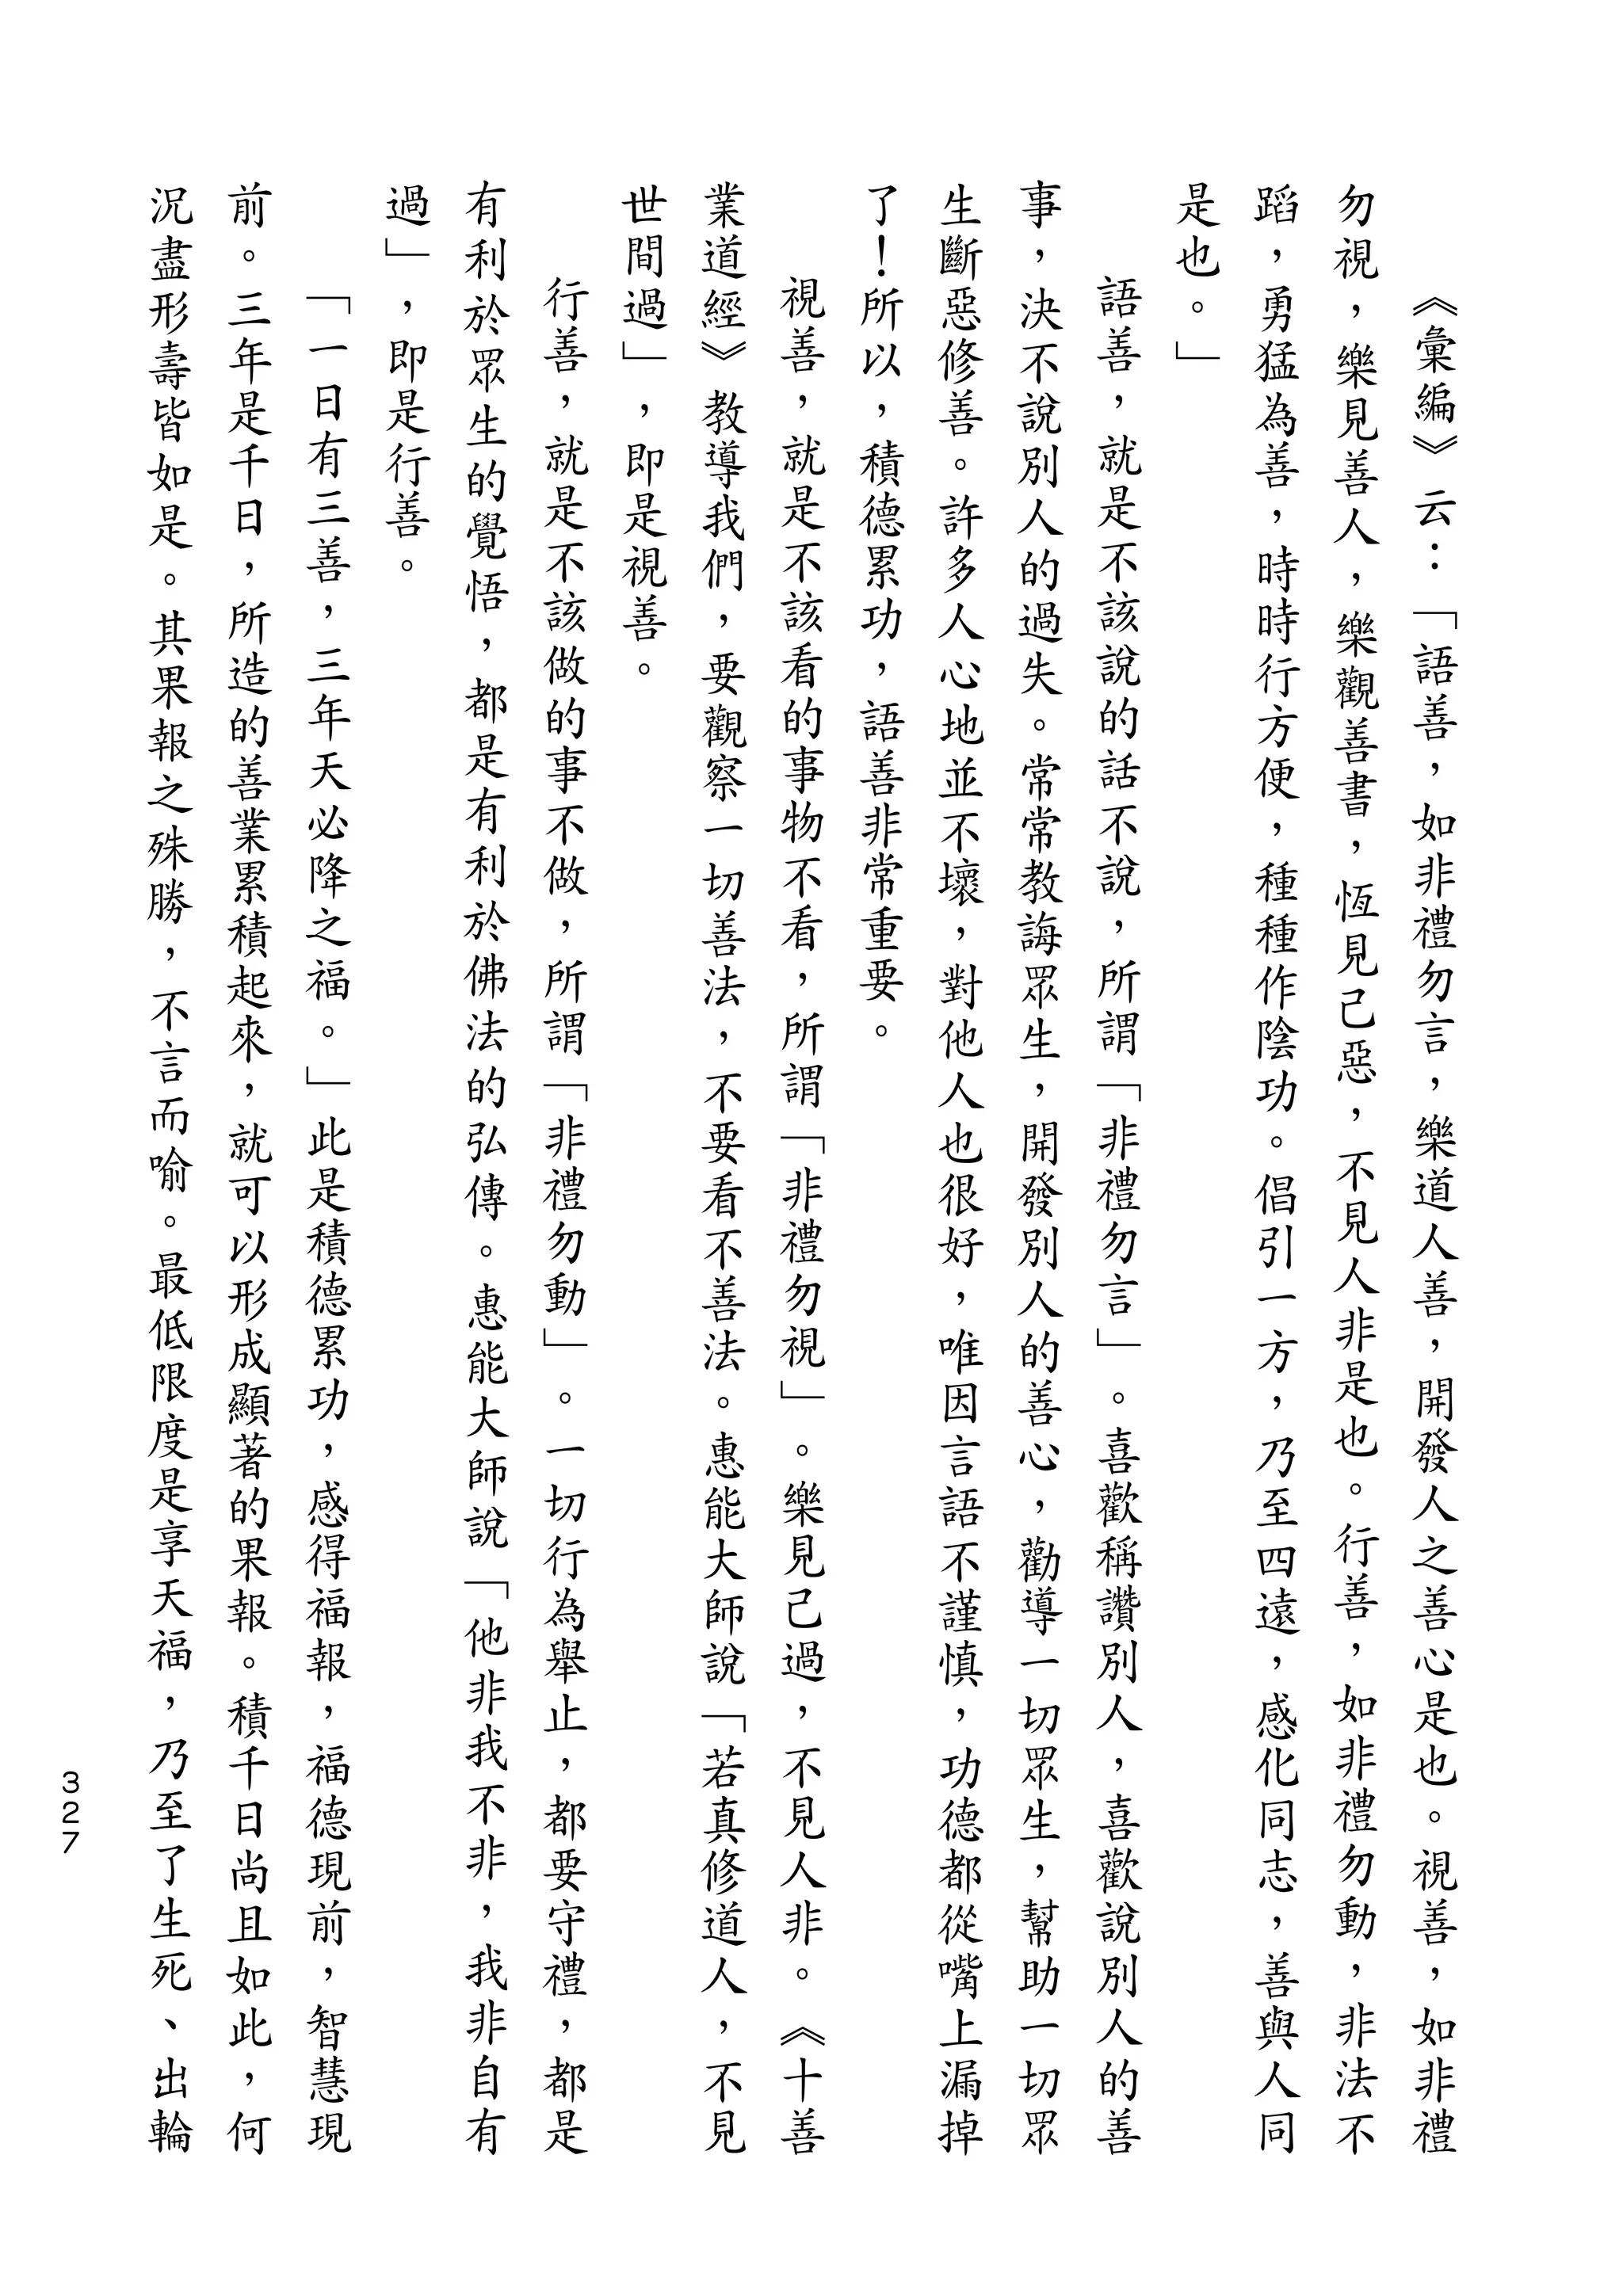 《彙編》云：「語善，如非禮勿言，樂道人善，開發人之善心是也。視善，如非禮
勿視，樂見善人，樂觀善書，恆見己惡，不見人非是也。行善，如非禮勿動，非法不
蹈，勇猛為善，時時行方便，種種作陰功。倡引一方，乃至四遠，感化同志，善與人同
是也。」
語善，就是不該說的話不說，所謂「非禮勿言」。喜歡稱讚別人，喜歡說別人的善
事，決不說別人的過失。常常教誨眾生，開發別人的善心，勸導一切眾生，幫助一切眾
生斷惡修善。許多人心地並不壞，對他人也很好，唯因言語不謹慎，功德都從嘴上漏掉
了！所以，積德累功，語善非常重要。
視善，就是不該看的事物不看，所謂「非禮勿視」。樂見己過，不見人非。《十善
業道經》教導我們，要觀察一切善法，不要看不善法。惠能大師說「若真修道人，不見
世間過」，即是視善。
行善，就是不該做的事不做，所謂「非禮勿動」。一切行為舉止，都要守禮，都是
有利於眾生的覺悟，都是有利於佛法的弘傳。惠能大師說「他非我不非，我非自有
過」，即是行善。
「一日有三善，三年天必降之福。」此是積德累功，感得福報，福德現前，智慧現
前。三年是千日，所造的善業累積起來，就可以形成顯著的果報。積千日尚且如此，何
況盡形壽皆如是。其果報之殊勝，不言而喻。最低限度是享天福，乃至了生死、出輪
327